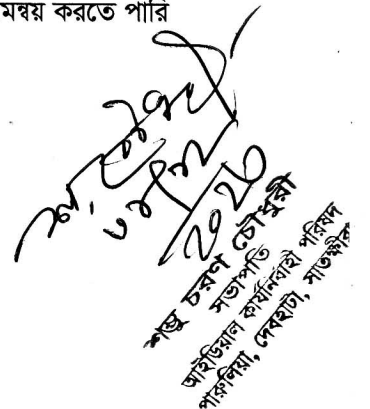 মন্বয় করতে পারি
২০২৩
শম্ভু চরণ চৌধুরী
সভাপতি
আইডিয়াল কার্যনির্বাহী পরিষদ
পারুলিয়া, দেবহাটা, সাতক্ষীরা